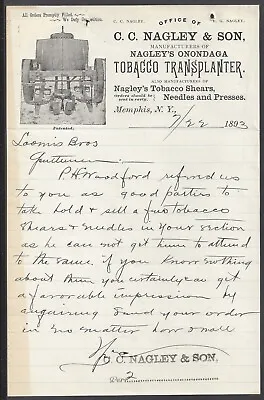 All Orders Promptly Filled.
We Defy Competition.
Patented.
OFFICE OF
C. C. NAGLEY.
G. NAGLEY.
C. C. NAGLEY & SON,
MANUFACTURERS OF
NAGLEY'S ONONDAGA
TOBACCO TRANSPLANTER.
ALSO MANUFACTURERS OF
Nagley's Tobacco Shears,
Orders should be
sent in early.
Needles and Presses.
Memphis, N. Y., 7/22 1893
Loomis Bros
Gentlemen
P. H. Woodford refered us
to you as good parties to
take hold & sell a few tobacco
shears & needles in your section
as he can not get him to attend
to the same. if you know nothing
about them you certainly can get
a favorable impression by
enquiring send your order
in no matter how small
C. C. NAGLEY & SON,
2